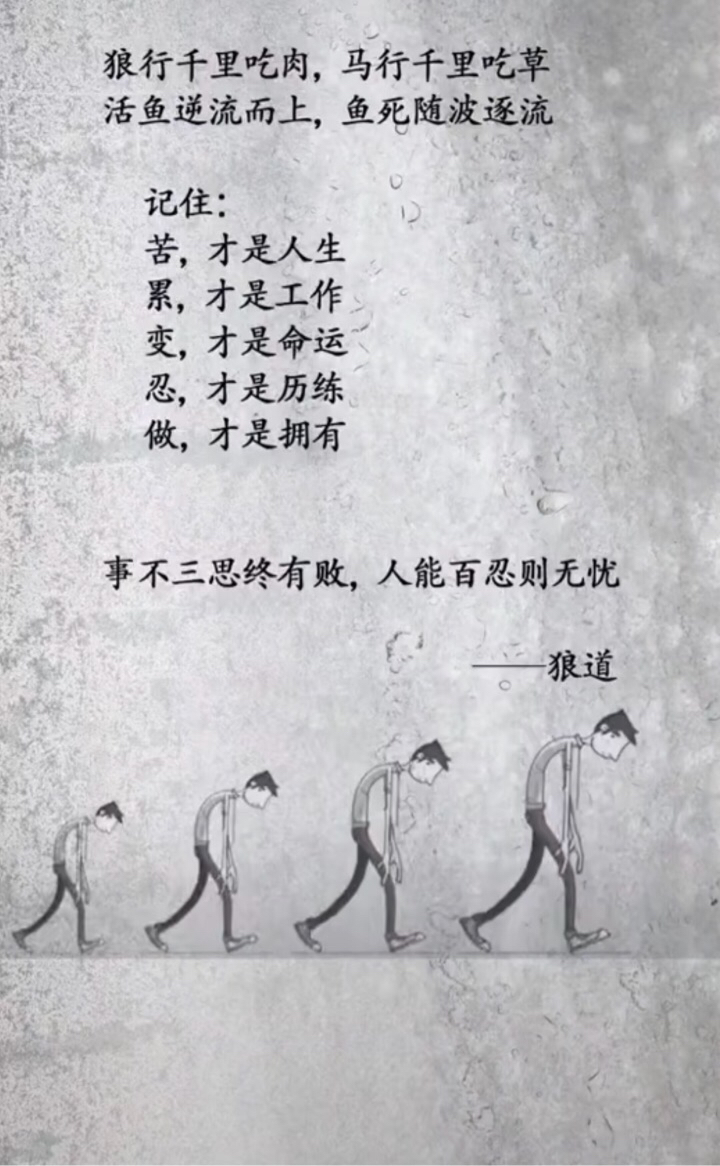 狼行千里吃肉，马行千里吃草
活鱼逆流而上，鱼死随波逐流
记住：
苦，才是人生
累，才是工作
变，才是命运
忍，才是历练
做，才是拥有
事不三思终有败，人能百忍则无忧
——狼道